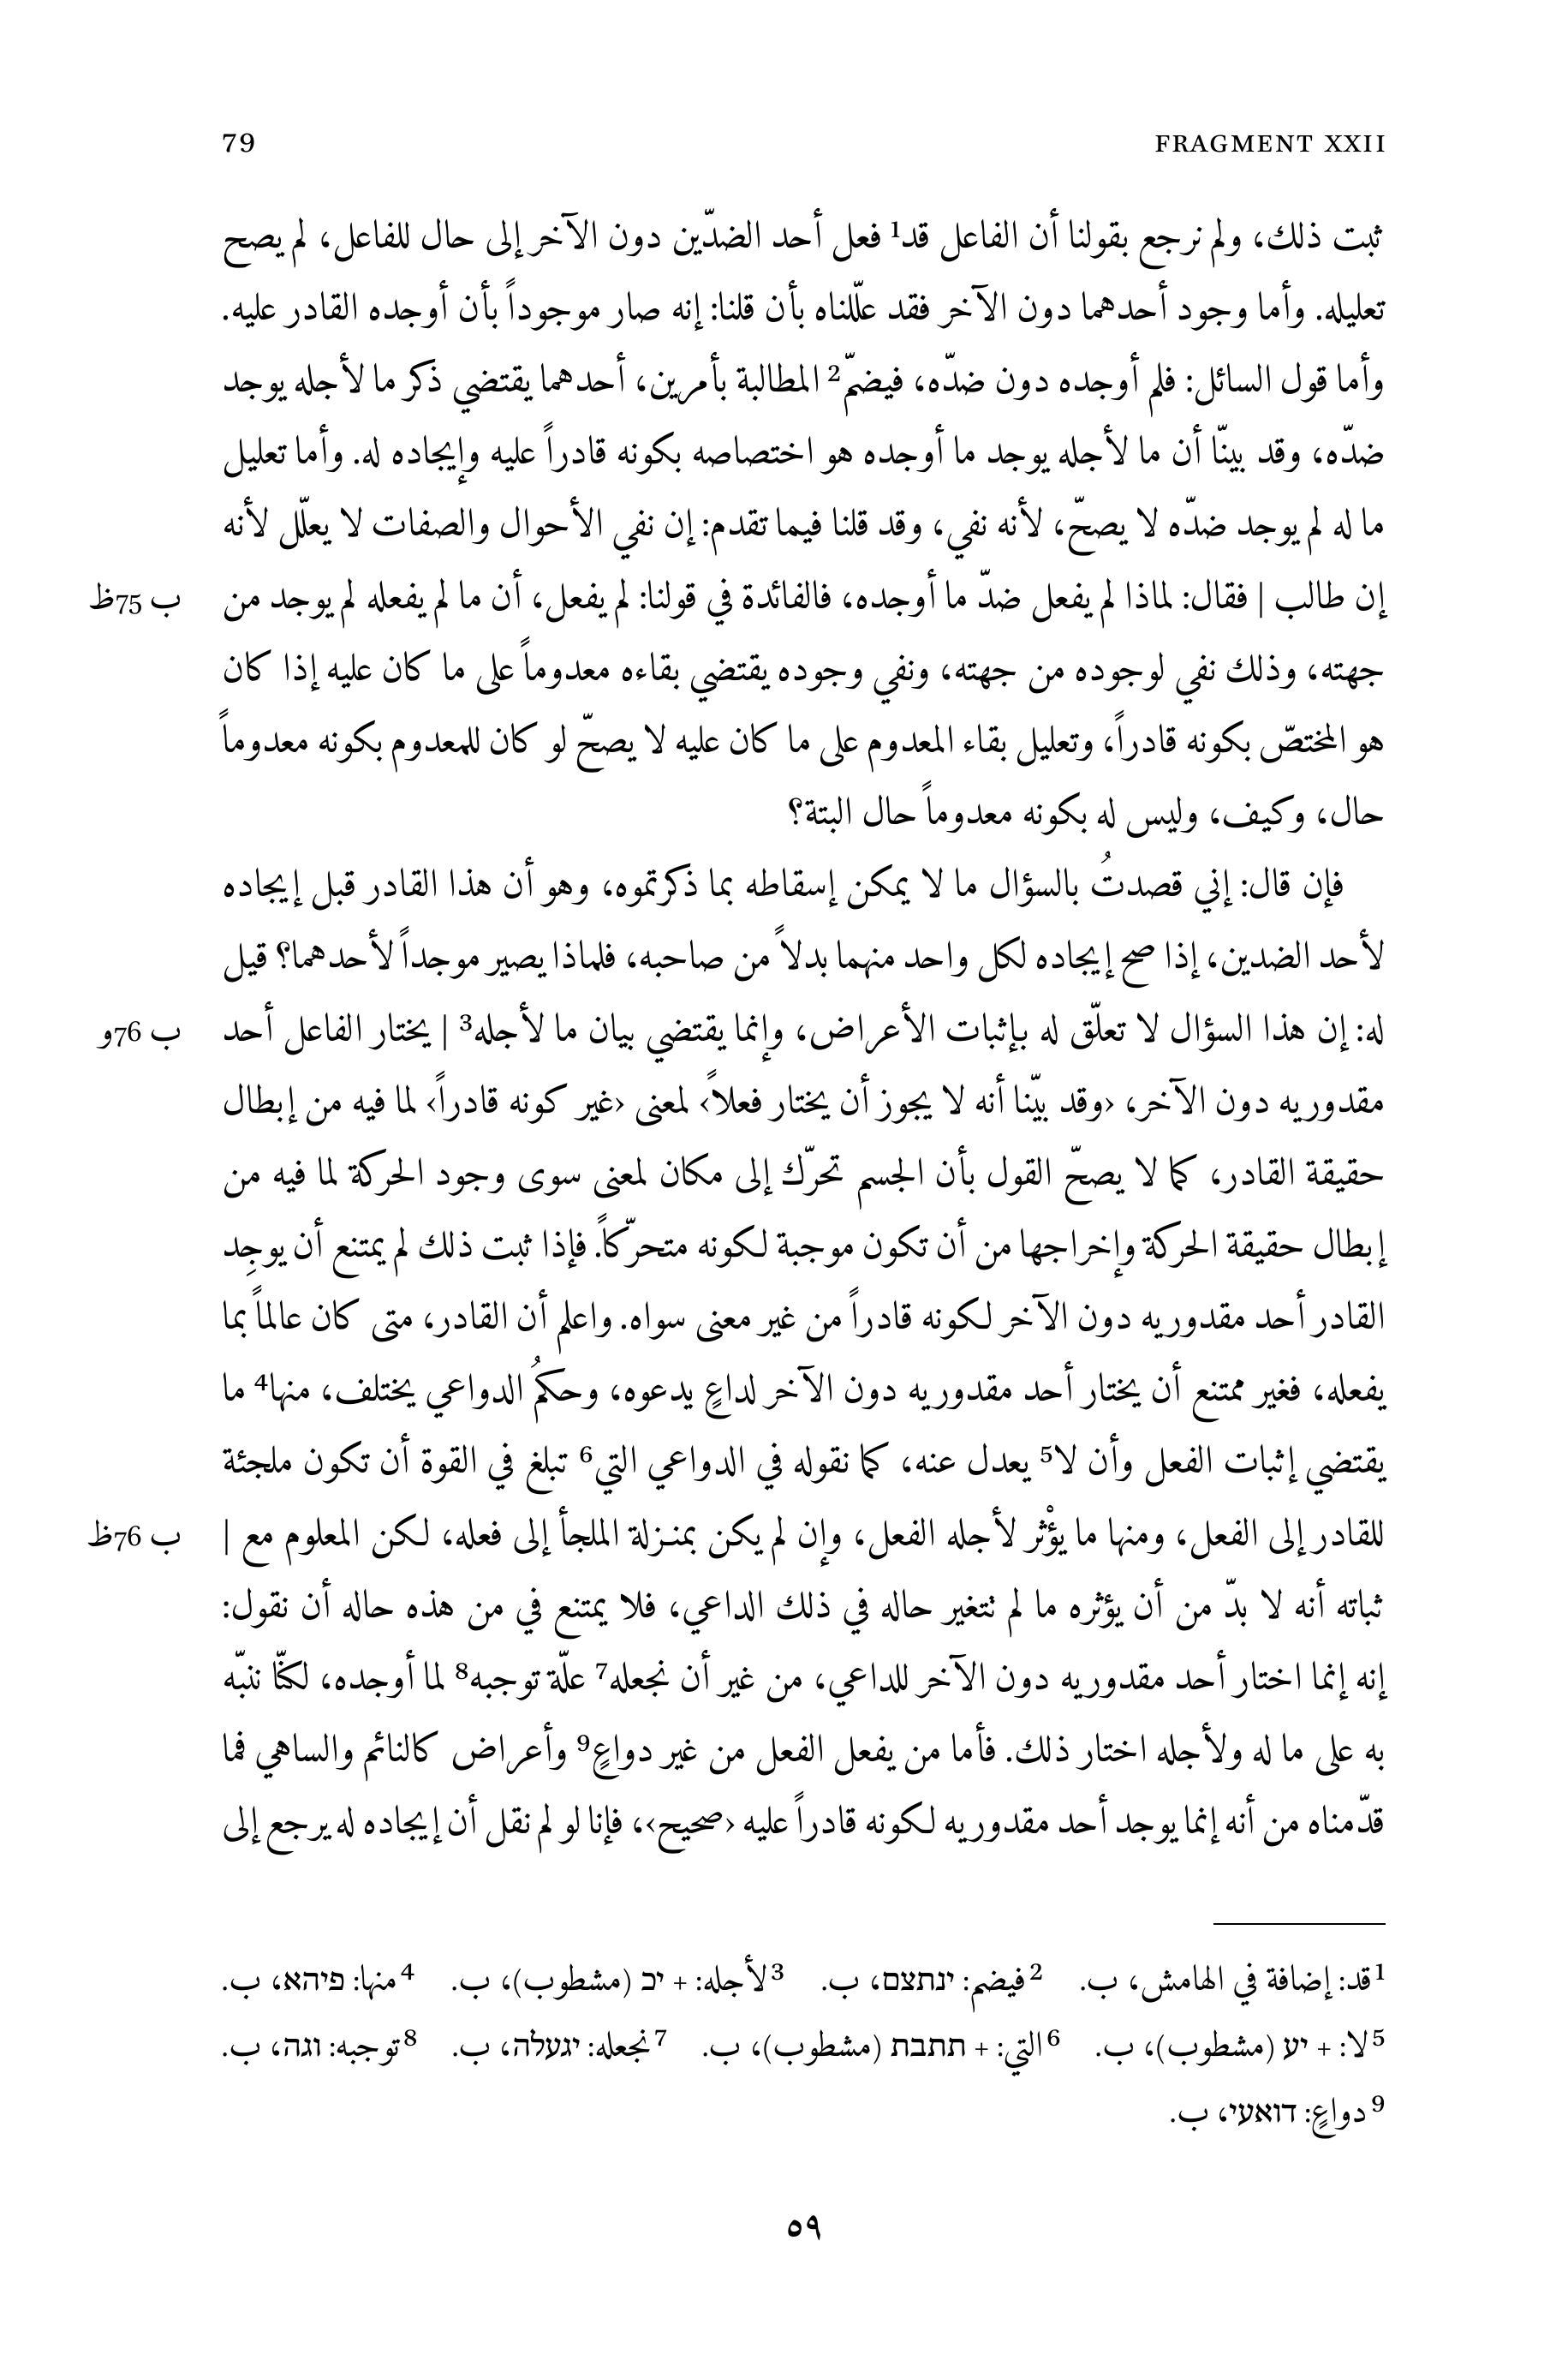 79 FRAGMENT XXII
ثبت ذلك، ولم نرجع بقولنا أن الفاعل قد1 فعل أحد الضدّين دون الآخر إلى حال للفاعل، لم يصح
تعليله. وأما وجود أحدهما دون الآخر فقد علّلناه بأن قلنا: إنه صار موجوداً بأن أوجده القادر عليه.
وأما قول السائل: فلم أوجده دون ضدّه، فيضمّ2 المطالبة بأمرين، أحدهما يقتضي ذكر ما لأجله يوجد
ضدّه، وقد بينّا أن ما لأجله يوجد ما أوجده هو اختصاصه بكونه قادراً عليه وإيجاده له. وأما تعليل
ما له لم يوجد ضدّه لا يصحّ، لأنه نفي، وقد قلنا فيما تقدم: إن نفي الأحوال والصفات لا يعلّل لأنه
إن طالب | فقال: لماذا لم يفعل ضدّ ما أوجده، فالفائدة في قولنا: لم يفعل، أن ما لم يفعله لم يوجد من ب 75ظ
جهته، وذلك نفي لوجوده من جهته، ونفي وجوده يقتضي بقاءه معدوماً على ما كان عليه إذا كان
هو المختصّ بكونه قادراً، وتعليل بقاء المعدوم على ما كان عليه لا يصحّ لو كان للمعدوم بكونه معدوماً
حال، وكيف، وليس له بكونه معدوماً حال البتة؟
فإن قال: إني قصدتُ بالسؤال ما لا يمكن إسقاطه بما ذكرتموه، وهو أن هذا القادر قبل إيجاده
لأحد الضدين، إذا صح إيجاده لكل واحد منهما بدلاً من صاحبه، فلماذا يصير موجداً لأحدهما؟ قيل
له: إن هذا السؤال لا تعلّق له بإثبات الأعراض، وإنما يقتضي بيان ما لأجله3 | يختار الفاعل أحد ب 76و
مقدوريه دون الآخر، ‹وقد بيّنا أنه لا يجوز أن يختار فعلاً› لمعنى ‹غير كونه قادراً› لما فيه من إبطال
حقيقة القادر، كما لا يصحّ القول بأن الجسم تحرّك إلى مكان لمعنى سوى وجود الحركة لما فيه من
إبطال حقيقة الحركة وإخراجها من أن تكون موجبة لكونه متحرّكاً. فإذا ثبت ذلك لم يمتنع أن يوجِد
القادر أحد مقدوريه دون الآخر لكونه قادراً من غير معنى سواه. واعلم أن القادر، متى كان عالماً بما
يفعله، فغير ممتنع أن يختار أحد مقدوريه دون الآخر لداعٍ يدعوه، وحكمُ الدواعي يختلف، منها4 ما
يقتضي إثبات الفعل وأن لا5 يعدل عنه، كما نقوله في الدواعي التي6 تبلغ في القوة أن تكون ملجئة
للقادر إلى الفعل، ومنها ما يؤْثر لأجله الفعل، وإن لم يكن بمنزلة الملجأ إلى فعله، لكن المعلوم مع | ب 76ظ
ثباته أنه لا بدّ من أن يؤثره ما لم تتغير حاله في ذلك الداعي، فلا يمتنع في من هذه حاله أن نقول:
إنه إنما اختار أحد مقدوريه دون الآخر للداعي، من غير أن نجعله7 علّة توجبه8 لما أوجده، لكنّا ننبّه
به على ما له ولأجله اختار ذلك. فأما من يفعل الفعل من غير دواعٍ9 وأعراض كالنائم والساهي فما
قدّمناه من أنه إنما يوجد أحد مقدوريه لكونه قادراً عليه ‹صحيح›، فإنا لو لم نقل أن إيجاده له يرجع إلى
1 قد: إضافة في الهامش، ب. 2 فيضم: ינתצם، ب. 3 لأجله: + יכ (مشطوب)، ب. 4 منها: פיהא، ب.
5 لا: + יע (مشطوب)، ب. 6 التي: + תתבת (مشطوب)، ب. 7 نجعله: יגעלה، ب. 8 توجبه: וגה، ب.
9 دواعٍ: דואעי، ب.
٥٩